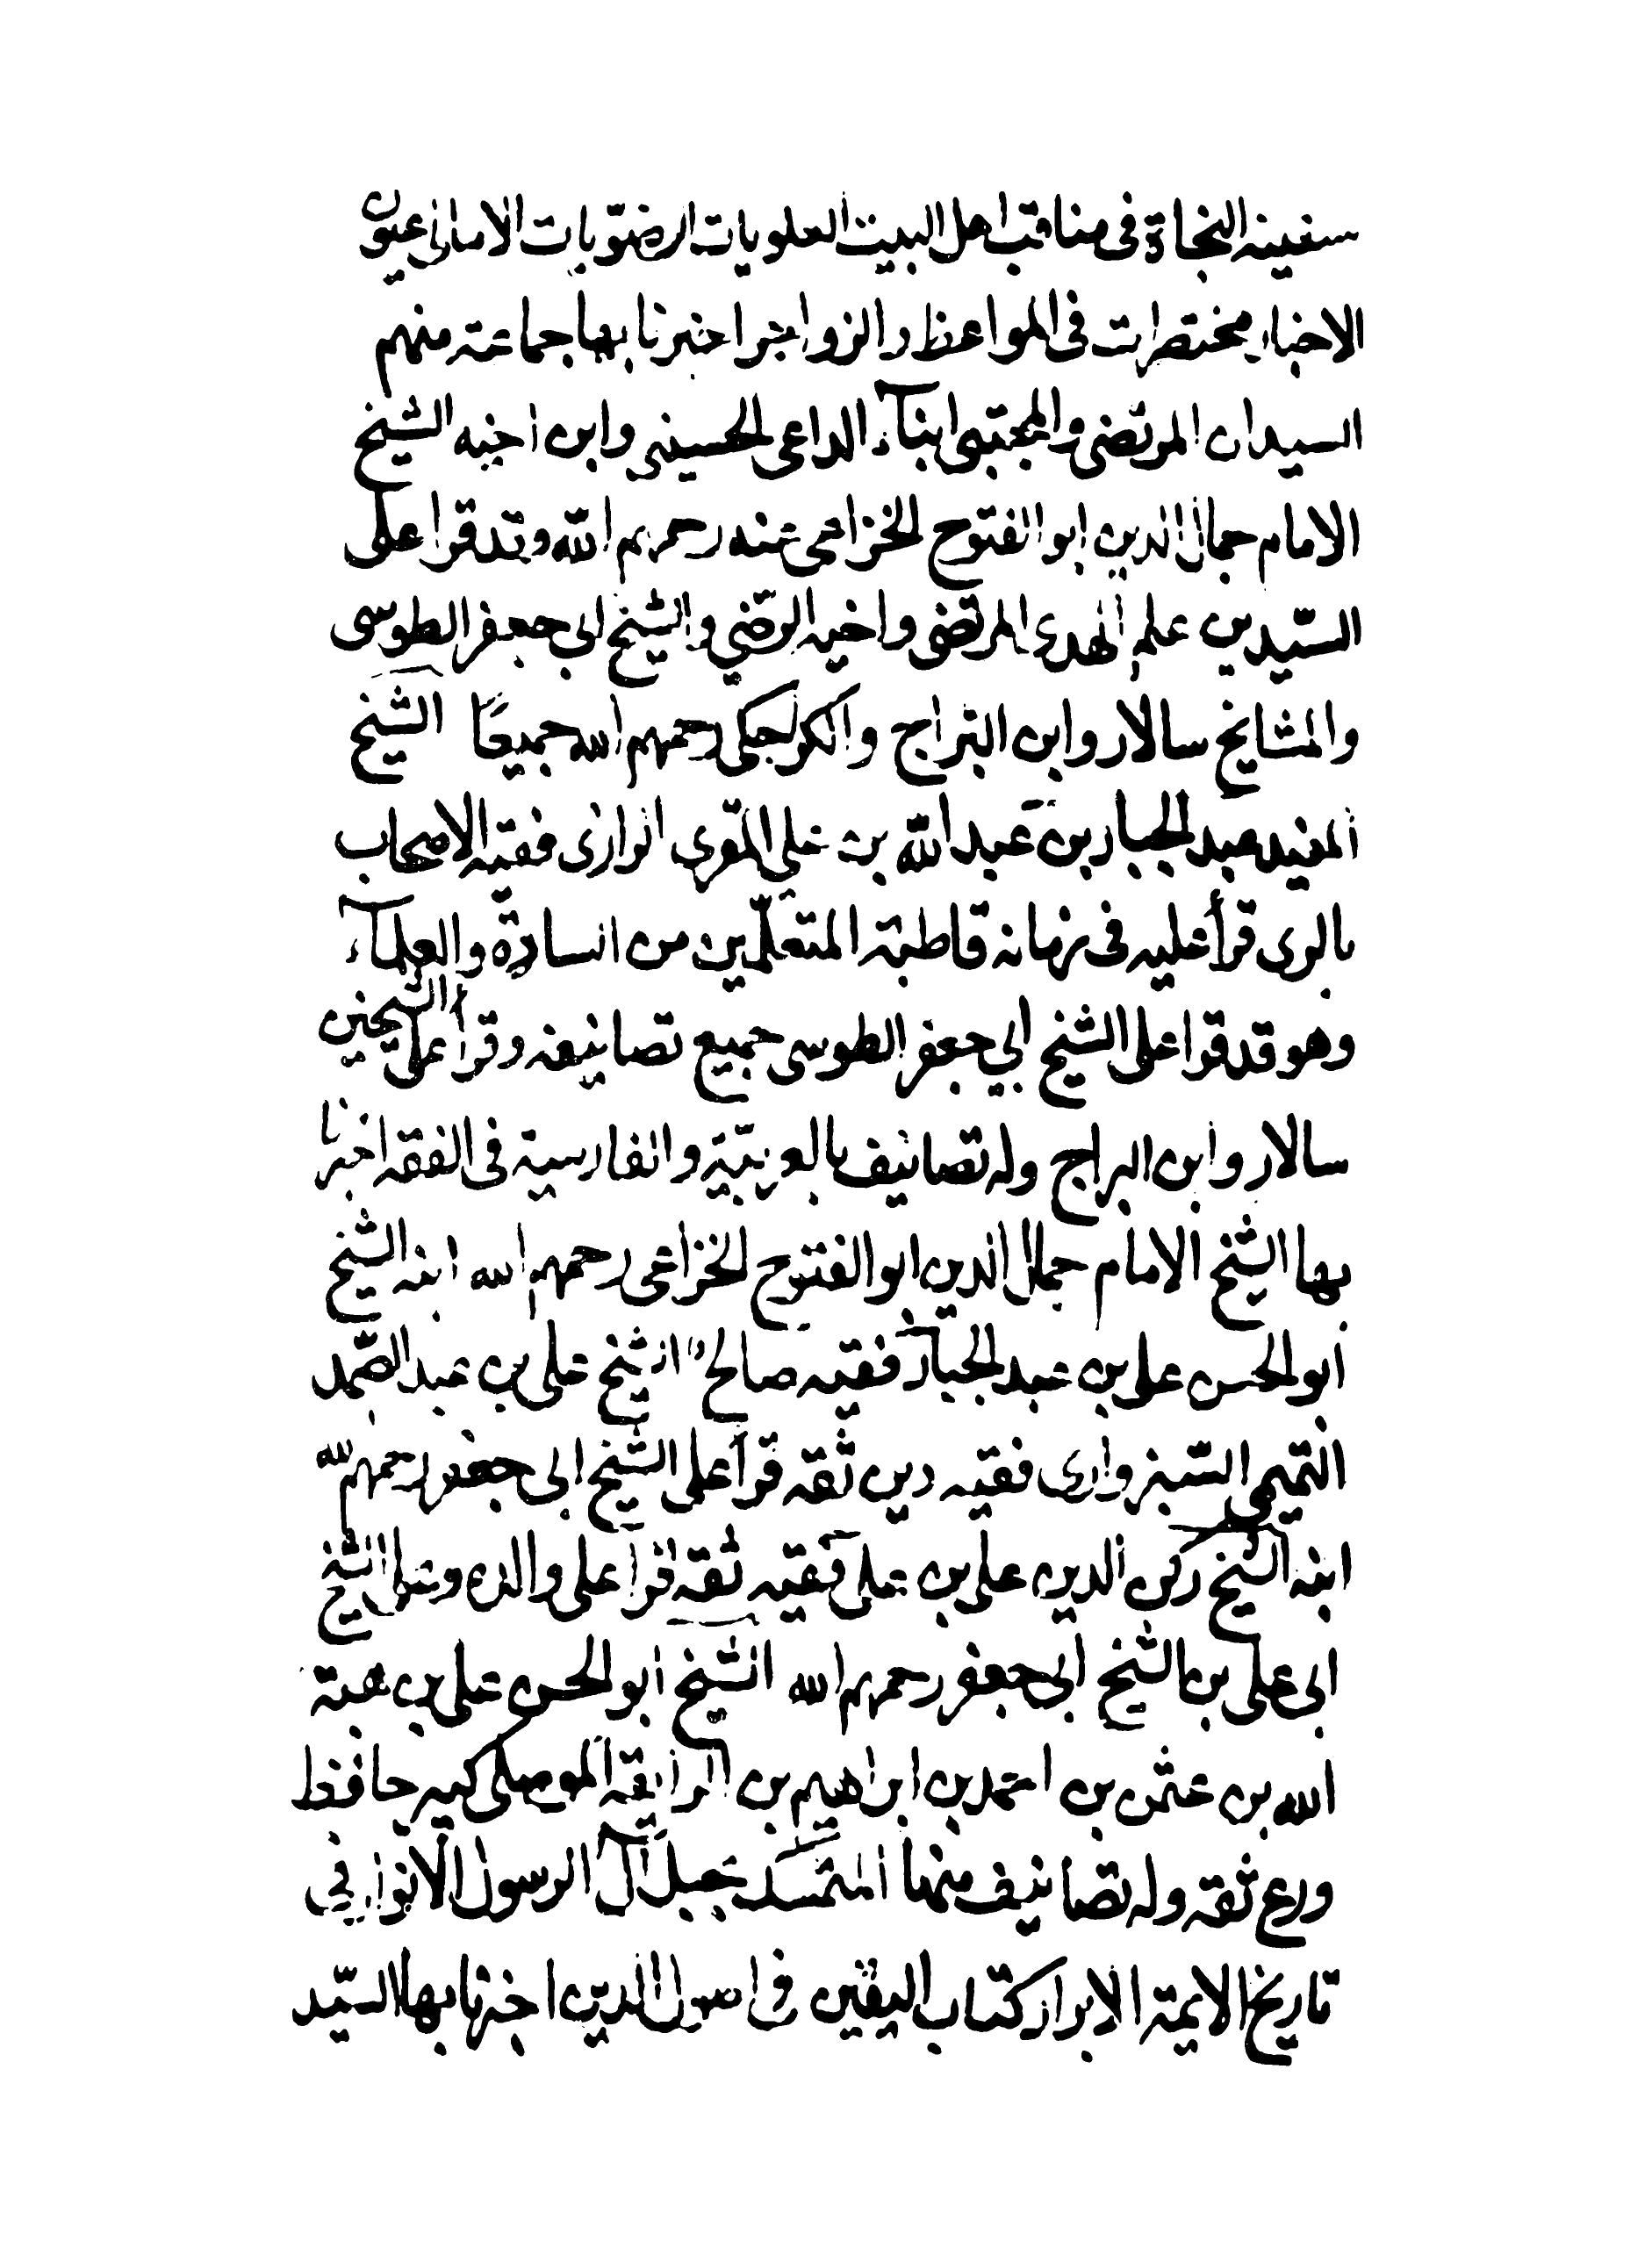 سفينة النجاة فى مناقب اهل البيت العلويات الرضويات الامالى عيون
الاخبار مختصرات فى المواعظ والزواجر اخبرنا بها جماعة منهم
السيدان المرتضى والمجتبى ابنآء الداعى الحسينى وابن اخيه الشيخ
الامام جمال الدين ابو الفتوح الخزاعى عنه رحمهم الله وقد قرا على
السّيدين علم الهدى المرتضى واخيه الرّضي والشيخ ابي جعفر الطوسى
والمشايخ سالار وابن البراج والكراجكى رحمهم الله جميعًا الشيخ
المفيد عبد الجبار بن عبد الله بن على المقرى الرازى فقيه الاصحاب
بالرى قرأ عليه فى زمانه قاطبة المتعلّمين من السادة والعلمآء
وهو قد قرا على الشيخ ابي جعفر الطوسى جميع تصانيفه وقرأ على الشيخين
سالار وابن البراج وله تصانيف بالعربيّة والفارسية فى الفقه اخبرنا
بها الشيخ الامام جمال الدين ابو الفتوح الخزاعى رحمهم الله ابنه الشيخ
ابو الحسن على بن عبد الجبار فقيه صالح الشيخ على بن عبد الصّمد
التميمى السّبزوارى فقيه دين ثقه قرأ على الشيخ ابى جعفر رحمهم الله
ابنه الشيخ ركن الدين على بن على فقيه ثقه قرأ على والده وعلى الشيخ
ابى على بن الشيخ ابى جعفر رحمهم الله الشيخ ابو الحسن على بن هبة
الله بن عثمن بن احمد بن ابراهيم بن الرايقة الموصلى كبير حافظ
ورع ثقه وله تصانيف منها المتمسك بحبل آل الرسول الانوار في
تاريخ الايمة الابرار كتاب اليقين فى اصول الدين اخبرنا بها السيّد